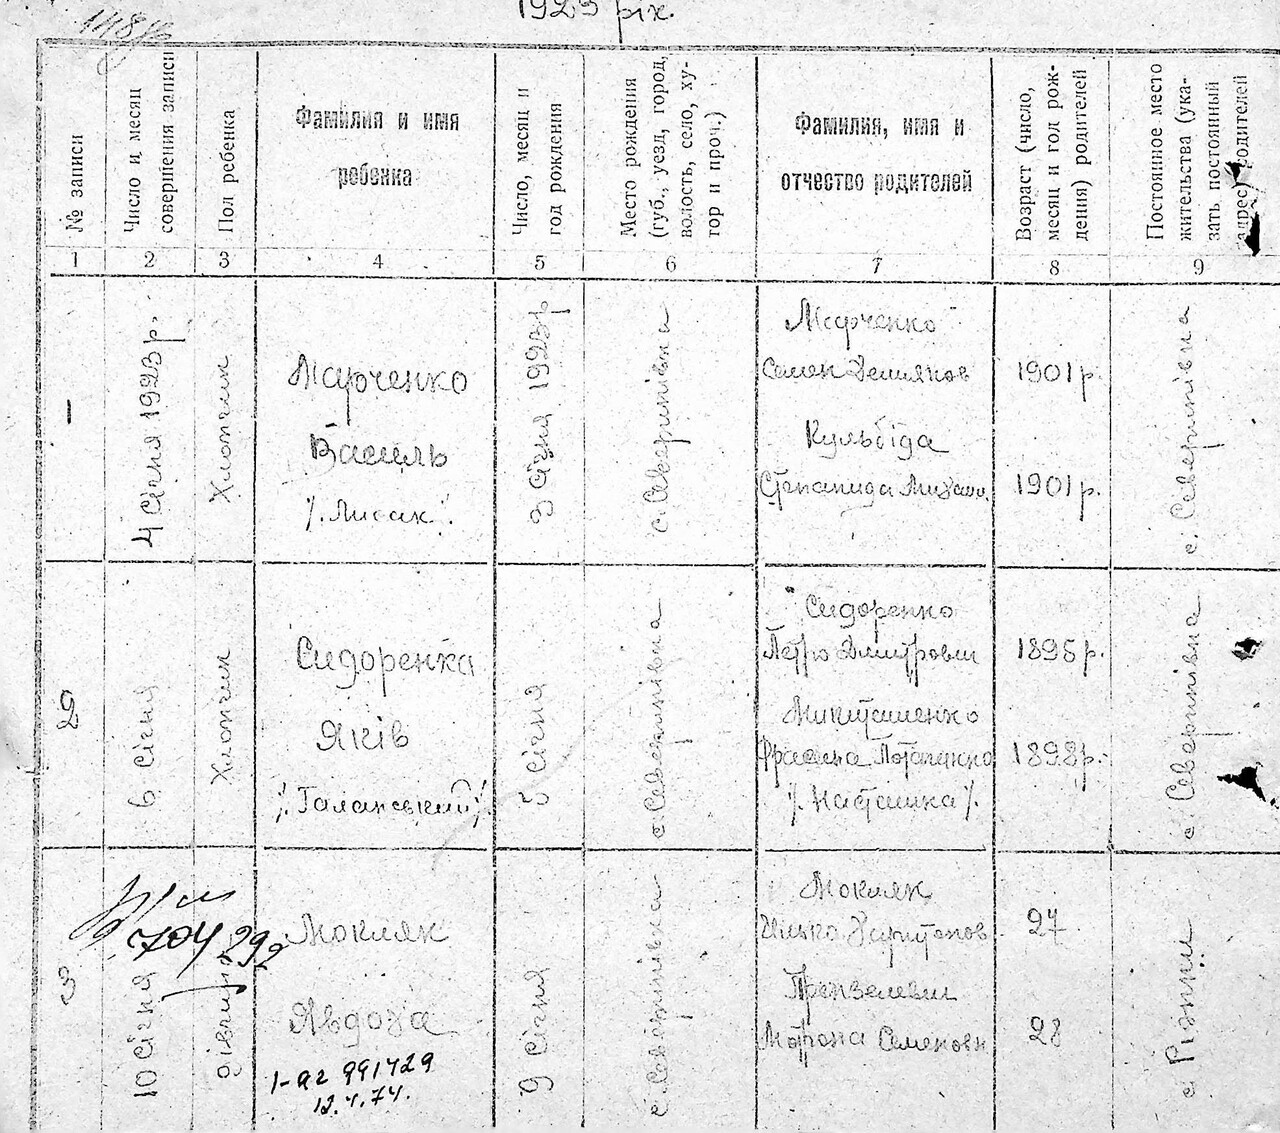 1923 рік.
№ записи
Число и месяц
совершения записи
Пол ребенка
Фамилия и имя
ребенка
Число, месяц и
год рождения
Место рождения
(губ., уезд, город,
волость, село, ху-
тор и проч.)
Фамилия, имя и
отчество родителей
Возраст (число,
месяц и год рож-
дения) родителей
Постоянное место
жительства (ука-
зать постоянный
адрес) родителей
1 2 3 4 5 6 7 8 9
1
4 Січня 1923 р.
Хлопчик
Марченко
Василь
/. Лисак ./
3 Січня 1923 р
с. Северинівка
Марченко
Семен Демянов
1901 р.
Кульбіда
Степанида Михайл.
1901 р.
с. Северинівка
2
6 Січня
Хлопчик
Сидоренка
Яків
/. Галанський ./
5 Січня
с. Северинівка
Сидоренко
Петро Дмитрович
1895 р.
Микиташенко
1898 р.
/. Насташка /.
с. Северинівка
3
10 Січня
дівчина
704 292
Мокляк
Явдоха
991429
12.4.74.
9 Січня
с. Северинівка
Мокляк
Ілько Харитонов
27
Мотрона Семеновн
28
с. Ріпки